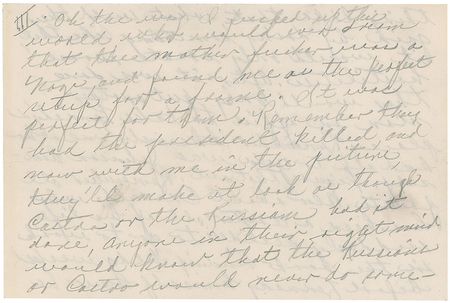 III. Oh the way I fucked up this
world who would ever dream
that this mother fucker was a
Nazi, and found me as the perfect
setup for a frame. It was
perfect for them. Remember they
had the president killed, and
now with me in the picture,
they'll make it look as though
Castro or the Russians had it
done, Anyone in their right mind
would know that the Russians
or Castro would never do some-